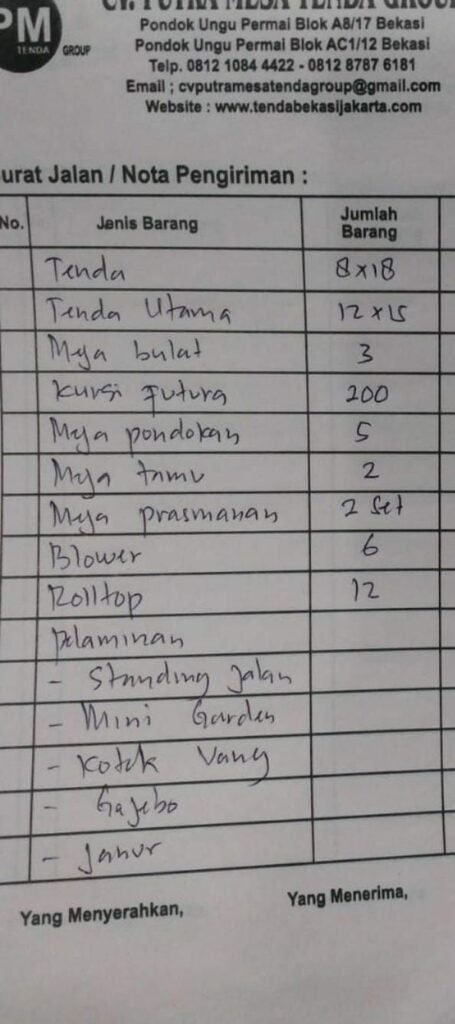 PM
TENDA GROUP
CV. PUTRA MESA TENDA GROUP
Pondok Ungu Permai Blok A8/17 Bekasi
Pondok Ungu Permai Blok AC1/12 Bekasi
Telp. 0812 1084 4422 - 0812 8787 6181
Email ; cvputramesatendagroup@gmail.com
Website : www.tendabekasijakarta.com
urat Jalan / Nota Pengiriman :
No. Jenis Barang Jumlah Barang
Tenda 8x18
Tenda Utama 12x15
Meja bulat 3
Kursi Futura 200
Meja pondokan 5
Meja tamu 2
Meja prasmanan 2 Set
Blower 6
Rolltop 12
Pelaminan
- Standing Jalan
- Mini Garden
- Kotak Uang
- Gajebo
- Janur
Yang Menyerahkan, Yang Menerima,